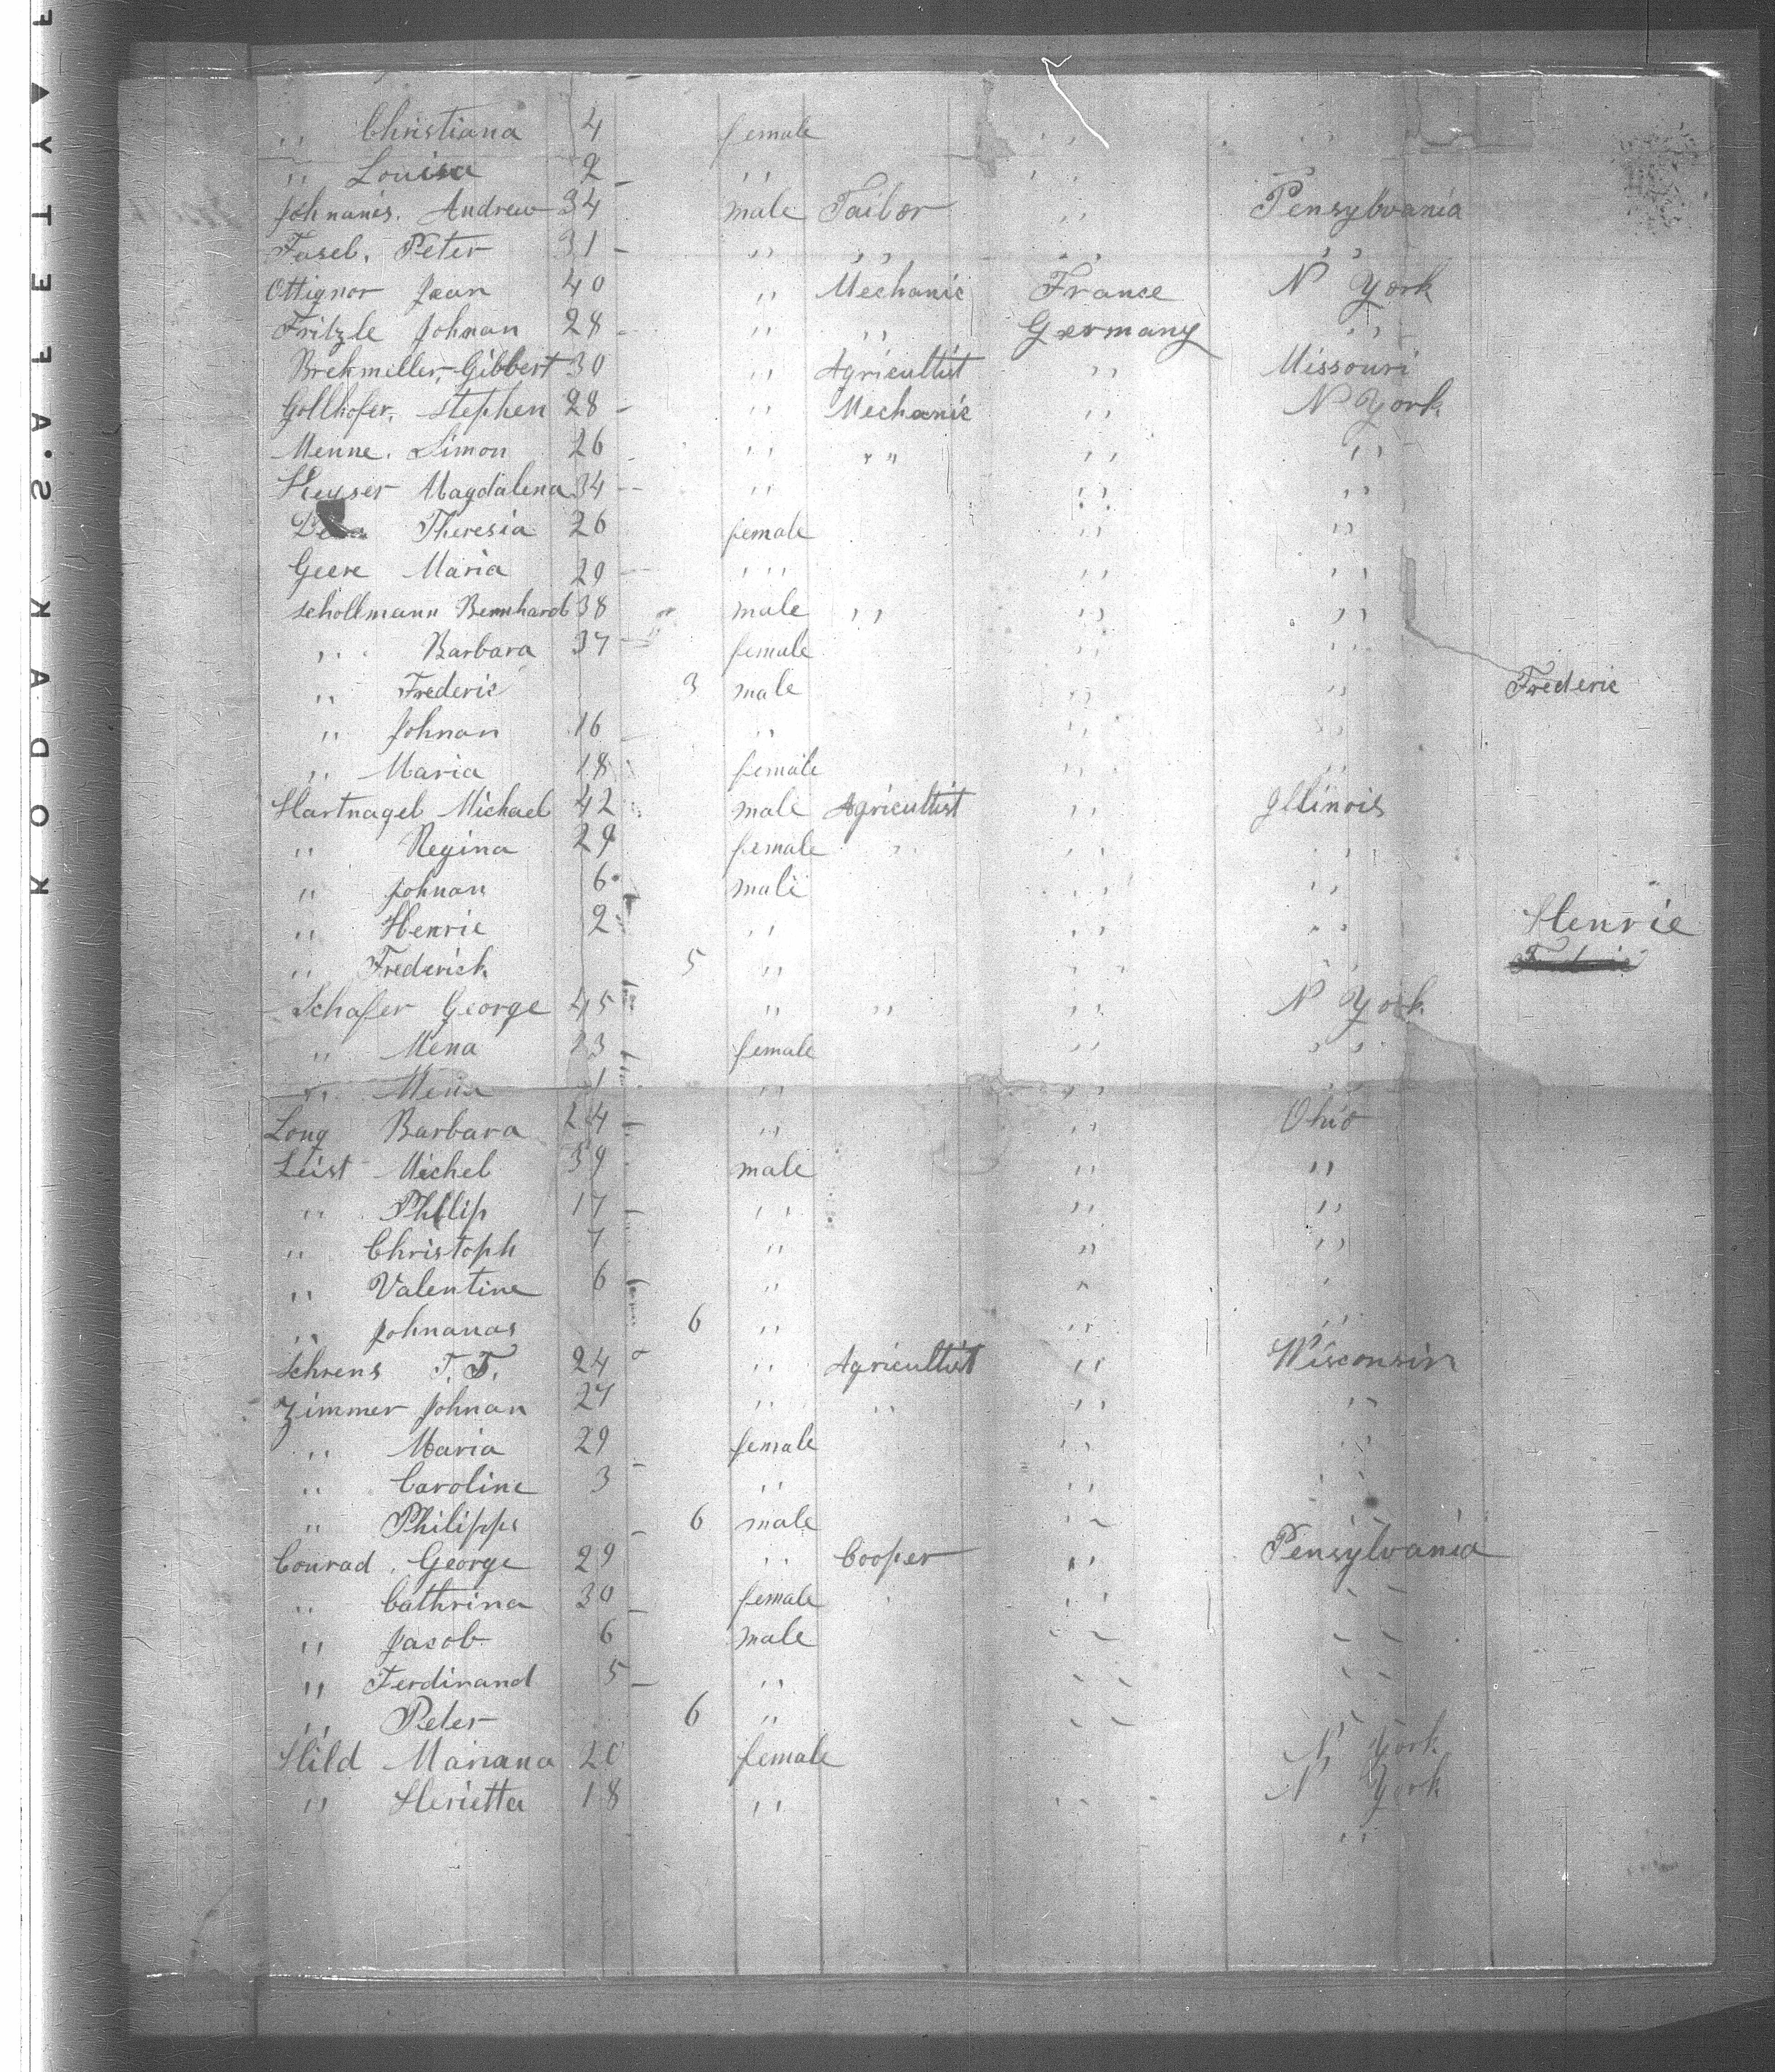 KODAK · S.A.FETY ▲ F
,, Christiana 4 female ,, ,,
,, Louisa 2 ,, ,,
Johnanes. Andrew 34 male Tailor ,, Pensylvania
Fasel. Peter 31 ,, ,, ,, ,,
Ottignor Jean 40 ,, Mechanic France N York
Fritzle Johnan 28 ,, ,, Germany ,,
Brekmeller, Gibbert 30 ,, Agricultist ,, Missouri
Gollhofer. Stephen 28 ,, Mechanic ,, N York
Menne. Simon 26 ,, ,, ,, ,,
Heyser Magdalena 34 ,, ,, ,,
Theresia 26 female ,, ,,
Geere Maria 29 ,, ,, ,,
Schollmann Bernhard 38 male ,, ,, ,,
,, Barbara 37 female ,, ,,
,, Frederic 3 male ,, ,, Frederic
,, Johnan 16 ,, ,, ,,
,, Maria 18 female ,, ,,
Hartnagel Michael 42 male Agricultist ,, Illinois
,, Regina 29 female ,, ,, ,,
,, Johnan 6 male ,, ,,
,, Henrie 2 ,, ,, ,, Henrie
,, Frederick 5 ,, ,, ,,
Schafer George 45 ,, ,, ,, N York
,, Mena 23 female ,, ,,
,, Mena 1 ,, ,, ,,
Long Barbara 24 ,, ,, Ohio
Leist Michel 39 male ,, ,,
,, Phllip 17 ,, ,, ,,
,, Christoph 7 ,, ,, ,,
,, Valentine 6 ,, ,, ,,
,, Johnanas 6 ,, ,, ,,
Schrens T. T. 24 ,, Agricultist ,, Wisconsin
Zimmer Johnan 27 ,, ,, ,, ,,
,, Maria 29 female ,, ,,
,, Caroline 3 ,, ,, ,,
,, Philipps 6 male ,, ,,
Conrad. George 29 ,, Cooper ,, Pensylvania
,, Cathrina 30 female ,, ,,
,, Jacob 6 male ,, ,,
,, Ferdinand 5 ,, ,, ,,
,, Peter 6 ,, ,, ,,
Hild Mariana 20 female N York
,, Herietta 18 ,, ,, N York
,,